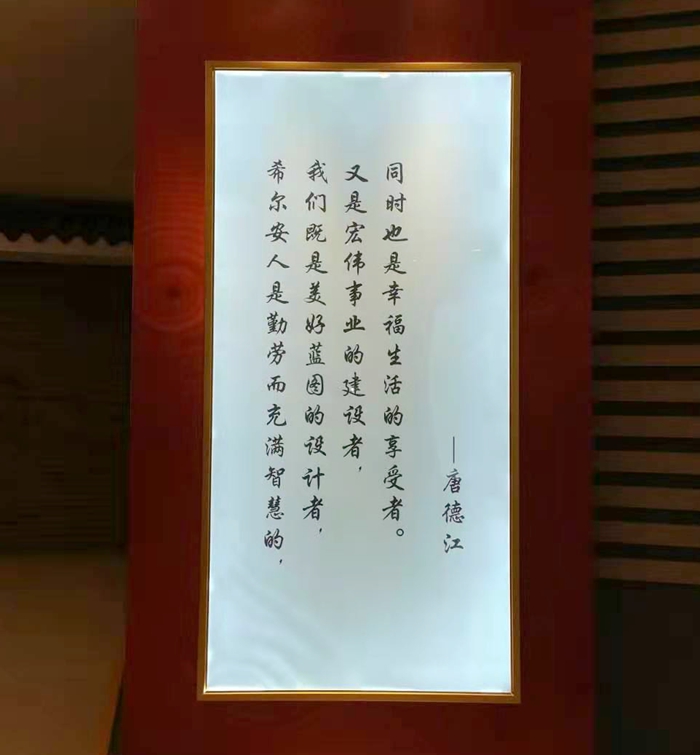 希尔安人是勤劳而充满智慧的，
我们既是美好蓝图的设计者，
又是宏伟事业的建设者，
同时也是幸福生活的享受者。
——唐德江